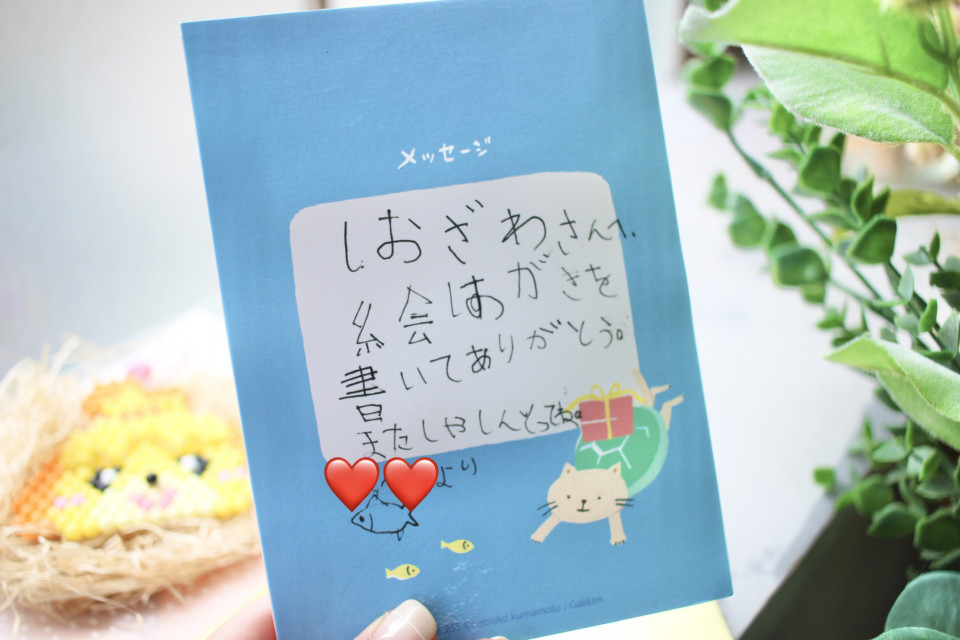 メッセージ
しおざわさんへ
絵はがきを
書いてありがとう。
またしゃしんとってね。
より
Gakken